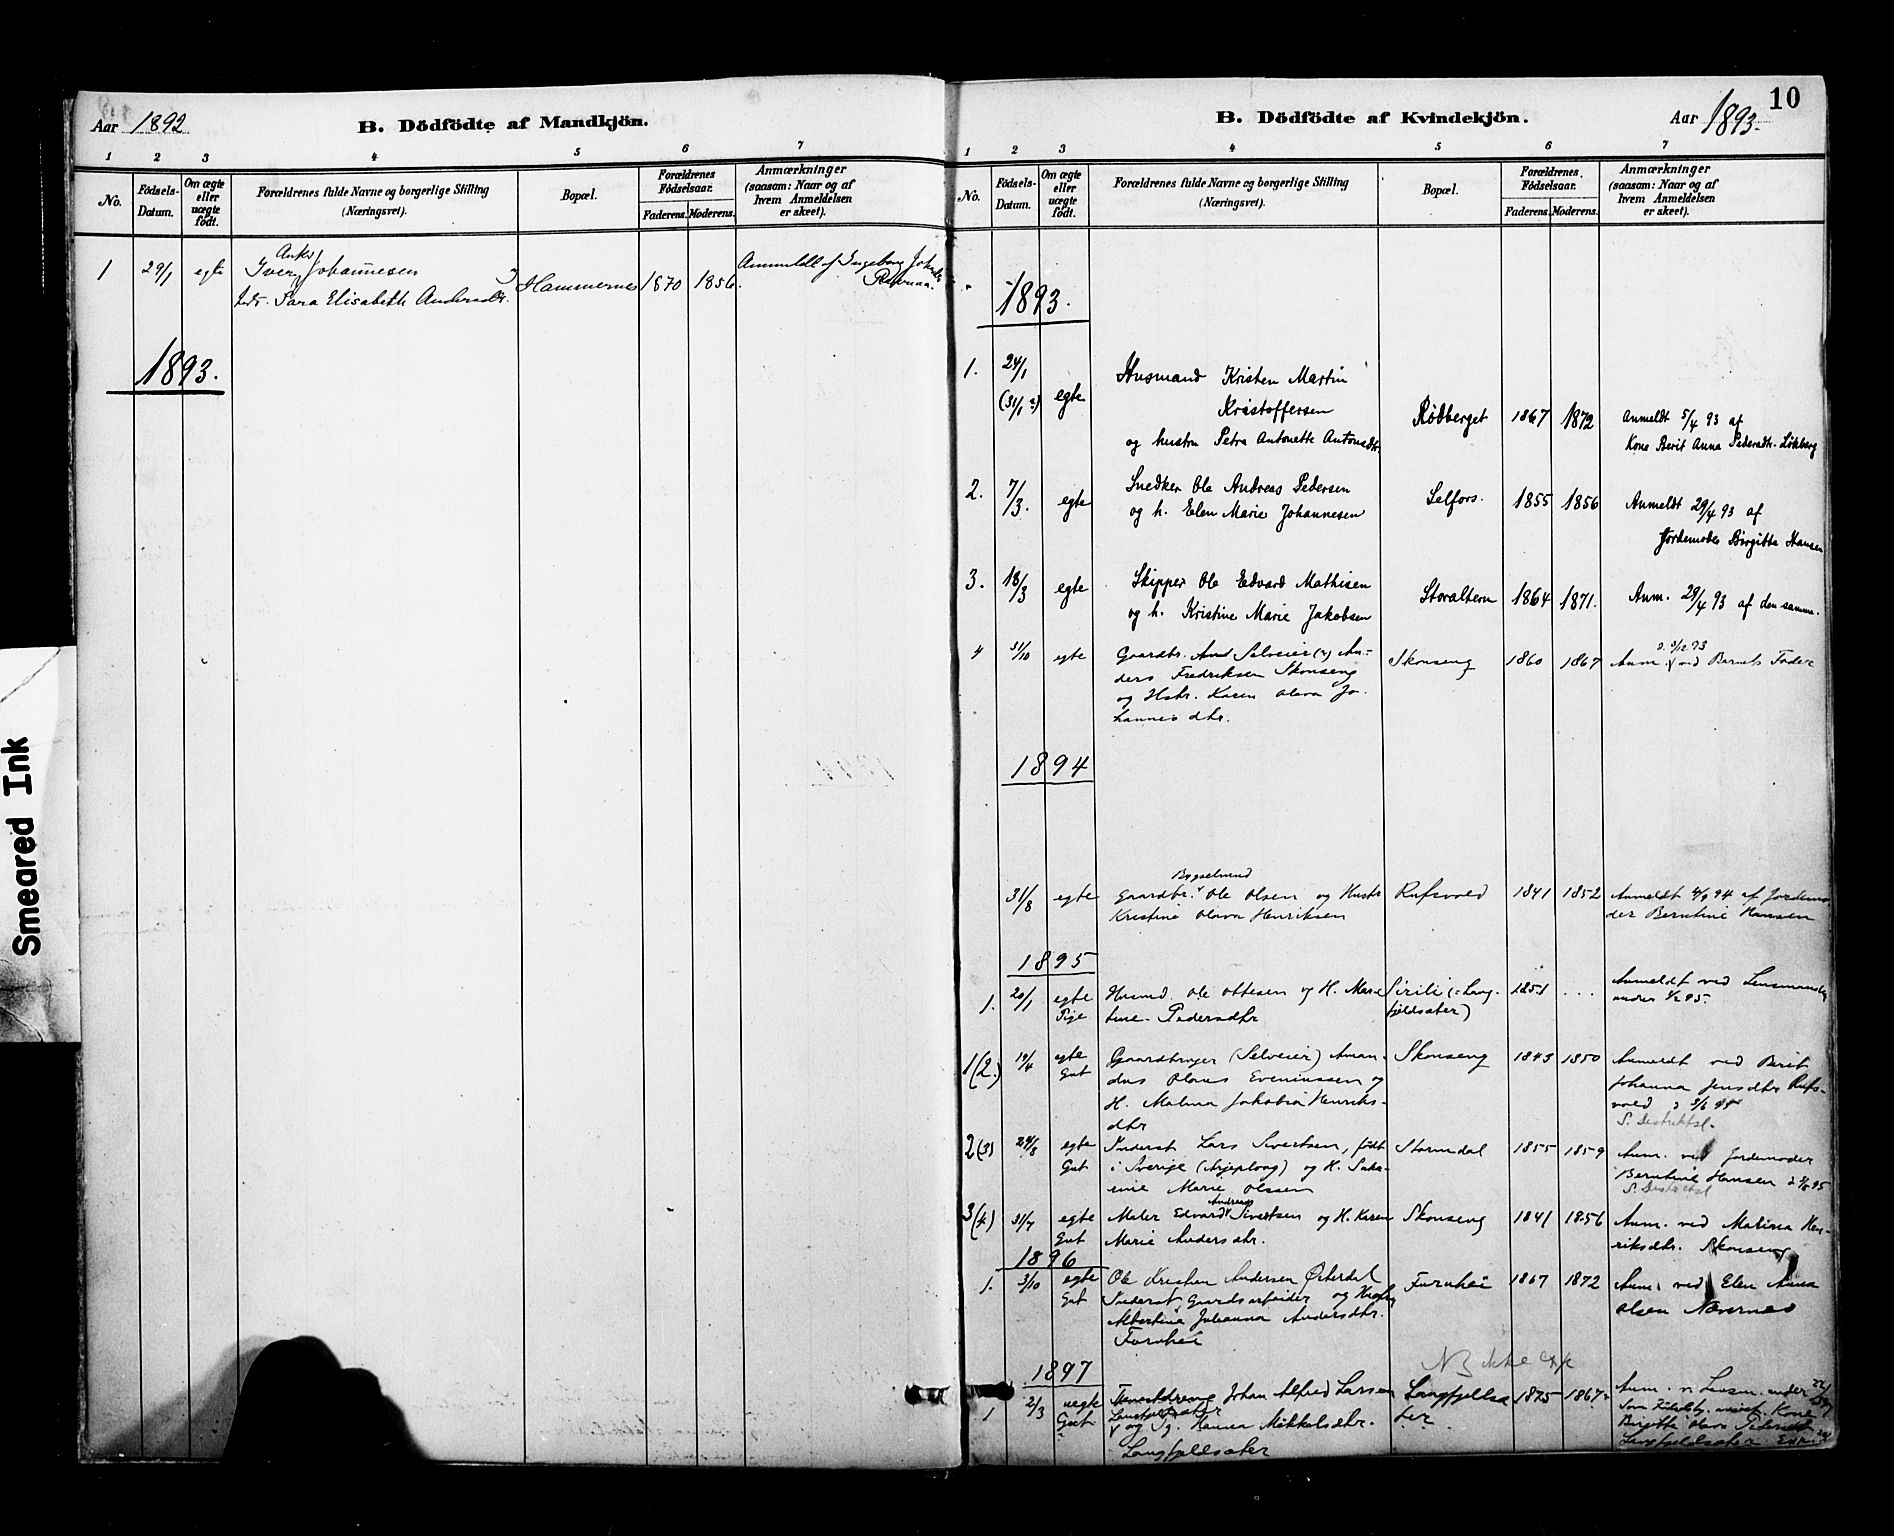 Aar 1892
B. Dödfödte af Mandkjön.
1 2 3 4 5 6 7
No.
Födsels-
Datum.
Om ægte
eller
uægte
födt.
Forældrenes fulde Navne og borgerlige Stilling
(Næringsvei).
Bopæl.
Forældrenes
Födselsaar.
Faderens. Moderens.
Anmærkninger
(saasom: Naar og af
hvem Anmeldelsen
er skeet).
1 29/1 egte
Iver Johannesen
Sara Elisabeth Andersdtr.
Hammernes 1870 1856.
Anmeldt af Ingeborg
1893.
10
B. Dödfödte af Kvindekjön.
Aar 1893.
1 2 3 4 5 6 7
No.
Födsels-
Datum.
Om ægte
eller
uægte
födt.
Forældrenes fulde Navne og borgerlige Stilling
(Næringsvei).
Bopæl.
Forældrenes
Födselsaar.
Faderens. Moderens.
Anmærkninger
(saasom: Naar og af
hvem Anmeldelsen
er skeet).
1893.
1. 24/1 (31/1 ?) egte
Husmand Kristen Martin
Kristoffersen
og hustru Petra Antonette Antonsdtr.
Rødberget 1867 1872
Anmeldt 5/4 93 af
Kone Berit Anna Pedersdtr. Løkberg
2. 7/3. egte
Snedker Ole Andreas Pedersen
og h. Elen Marie Johannesen
Selfors. 1855 1856
Anmeldt 29/4 93 af
Jordemoder Birgitte Hansen
3. 18/3 egte
Skipper Ole Edvard Mathisen
og h. Kristine Marie Jakobsen
Storaltern 1864 1871.
Anm. 29/4 93 af den samme.
4 31/10 egte
Gaardbr. Selveier An-
ders Fredriksen Skonseng
og Hstr. Karen Olava Jo-
hannesdtr.
Skonseng 1860 1867
Anm. ved Barnets Fader
1894
31/8 egte
Bygselmand
Gaardbr. Ole Olsen og Hustr
Kristine Olava Henriksen
Rufsvold 1841 1852
Anmeldt 4/9 94 af Jordemo
der Berntine Hansen
1895
1. 20/1 egte
Pige
Husmd. Ole Ottesen og H. Mar-
tine Pedersdtr
Sirili (= Lang-
fjeldsater)
1851 ...
Anmeldt ved Lensmanden
1(2.) 19/4 egte
Gut
Gaardbruger (Selveier) Aman-
dus Olaus Eveniussen og
H. Malena Jakobia Henriks-
dtr
Skonseng 1843 1850
Anmeldt ved Berit
Johanna Jensdtr Rufs-
vold
S. Destriktsl.
2(3) 24/8 egte
Gut
Inderst Lars Sivertsen, født
i Sverige (Arjeploug) og H.
Marie Olssen
Stormdal 1855 1859
Anm. ved Jordemoder
Berntine Hansen
3(4) 31/7 egte
Gut
Andreas
Maler Edvard Sivertsen og H. Karen
Marie Andersdtr.
Skonseng 1841 1856
Anm. ved Marina Hen-
riksdtr. Skonseng
1896
1. 3/10 egte
Gut
Ole Kristian Andersen Østerdal
Inderst Gaardsarbeider og
Albertina Johanna Andersdtr.
Furuhei
Furuhei 1867 1872
Anm. ved Elen Anna
Olsen Nævernes
NB ikke
1897
1 2/3 uegte
Gut
Johan Alfred Larsen
Langfjeldsater
og Pg. Hanna Mikkelsdtr.
Langfjeldsater
Langfjellsa
ter
1875 1867
Anm. v. Lensm.
Kone
Birgitte Olava Pedersdtr
Langfjeldsater
Smeared Ink